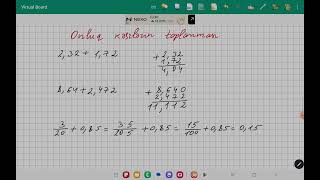 Virtual Board
NEXO
Onluq kəsrlərin toplanması
2,32 + 1,72
+ 2,32
1,72
4,04
8,64 + 2,472
+ 8,640
2,472
11,112
3/20 + 0,85 = 3·5/20·5 + 0,85 = 15/100 + 0,85 = 0,15